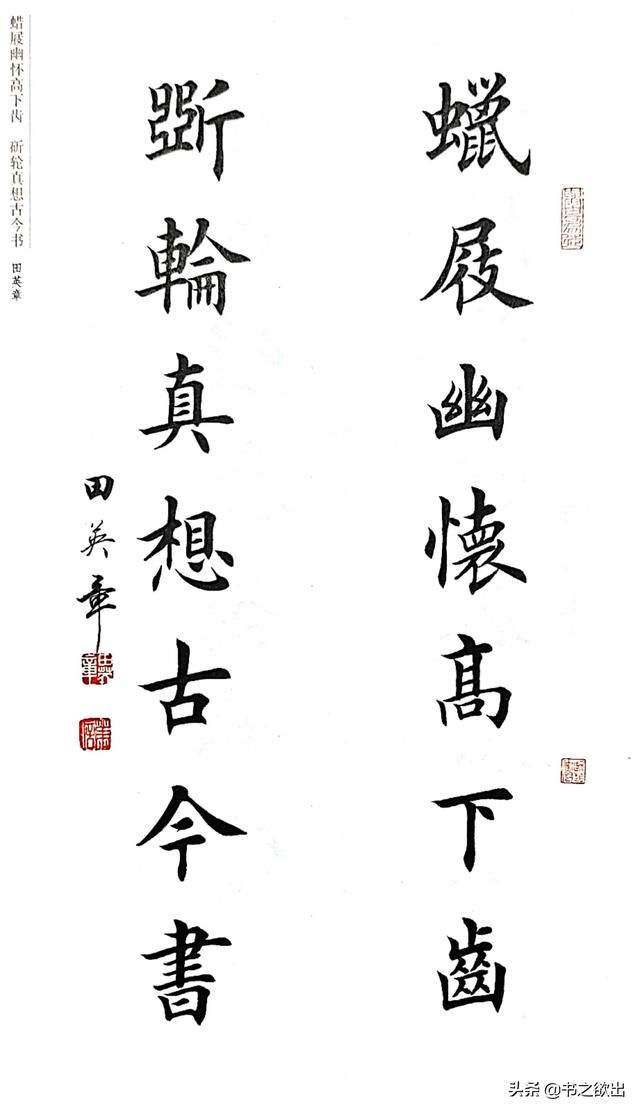 蠟屐幽懷髙下齒
斲輪真想古今書
田英章
蜡屐幽怀高下齿 斫轮真想古今书 田英章
头条 @书之欲出